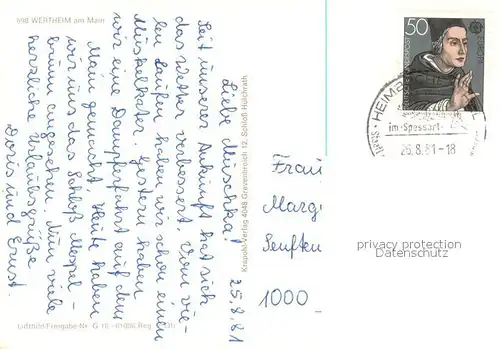 698 WERTHEIM am Main
25.8.81
Liebe Muschka!
Seit unserer Ankunft hat sich
das Wetter verbessert. Vom vie-
len Laufen haben wir schon einen
Muskelkater. Gestern haben
wir eine Dampferfahrt auf dem
Main gemacht. Heute haben
wir uns das Schloß Mespel-
brunn angesehen. Nun viele
herzliche Urlaubsgrüße
Doris und Ernst.
Luftbild-Freigabe-Nr. G
Krapohl-Verlag 4048 Grevenbroich 12, Schloß Hülchrath
50
DEUTSCHE BUNDESPOST
im Spessart
26.8.81-18
Frau
Marg
Senftu
1000
privacy protection
Datenschutz